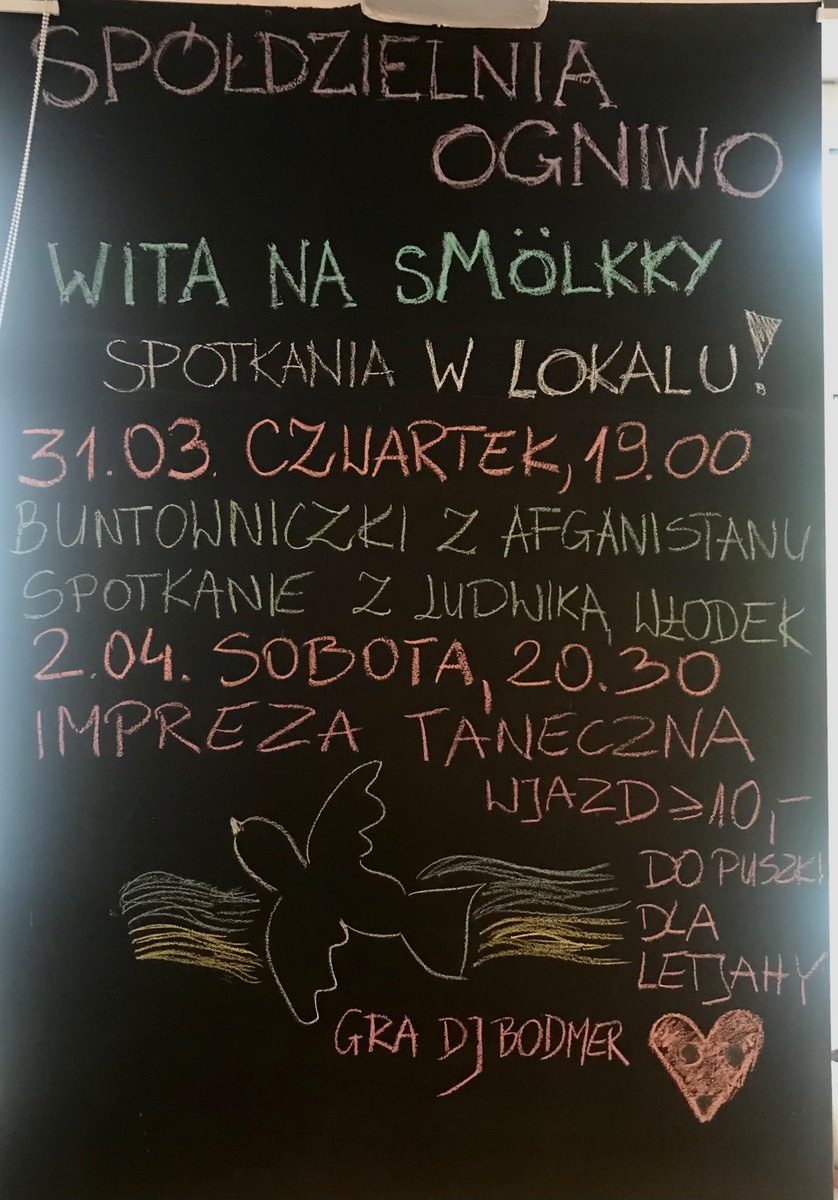 SPÓŁDZIELNIA
OGNIWO
WITA NA SMÖLKKY
SPOTKANIA W LOKALU!
31.03. CZWARTEK, 19.00
BUNTOWNICZKI Z AFGANISTANU
SPOTKANIE Z LUDWIKĄ WŁODEK
2.04. SOBOTA, 20.30
IMPREZA TANECZNA
WJAZD ≥10,-
DO PUSZKI
DLA
LETJAHY
GRA DJ BODMER